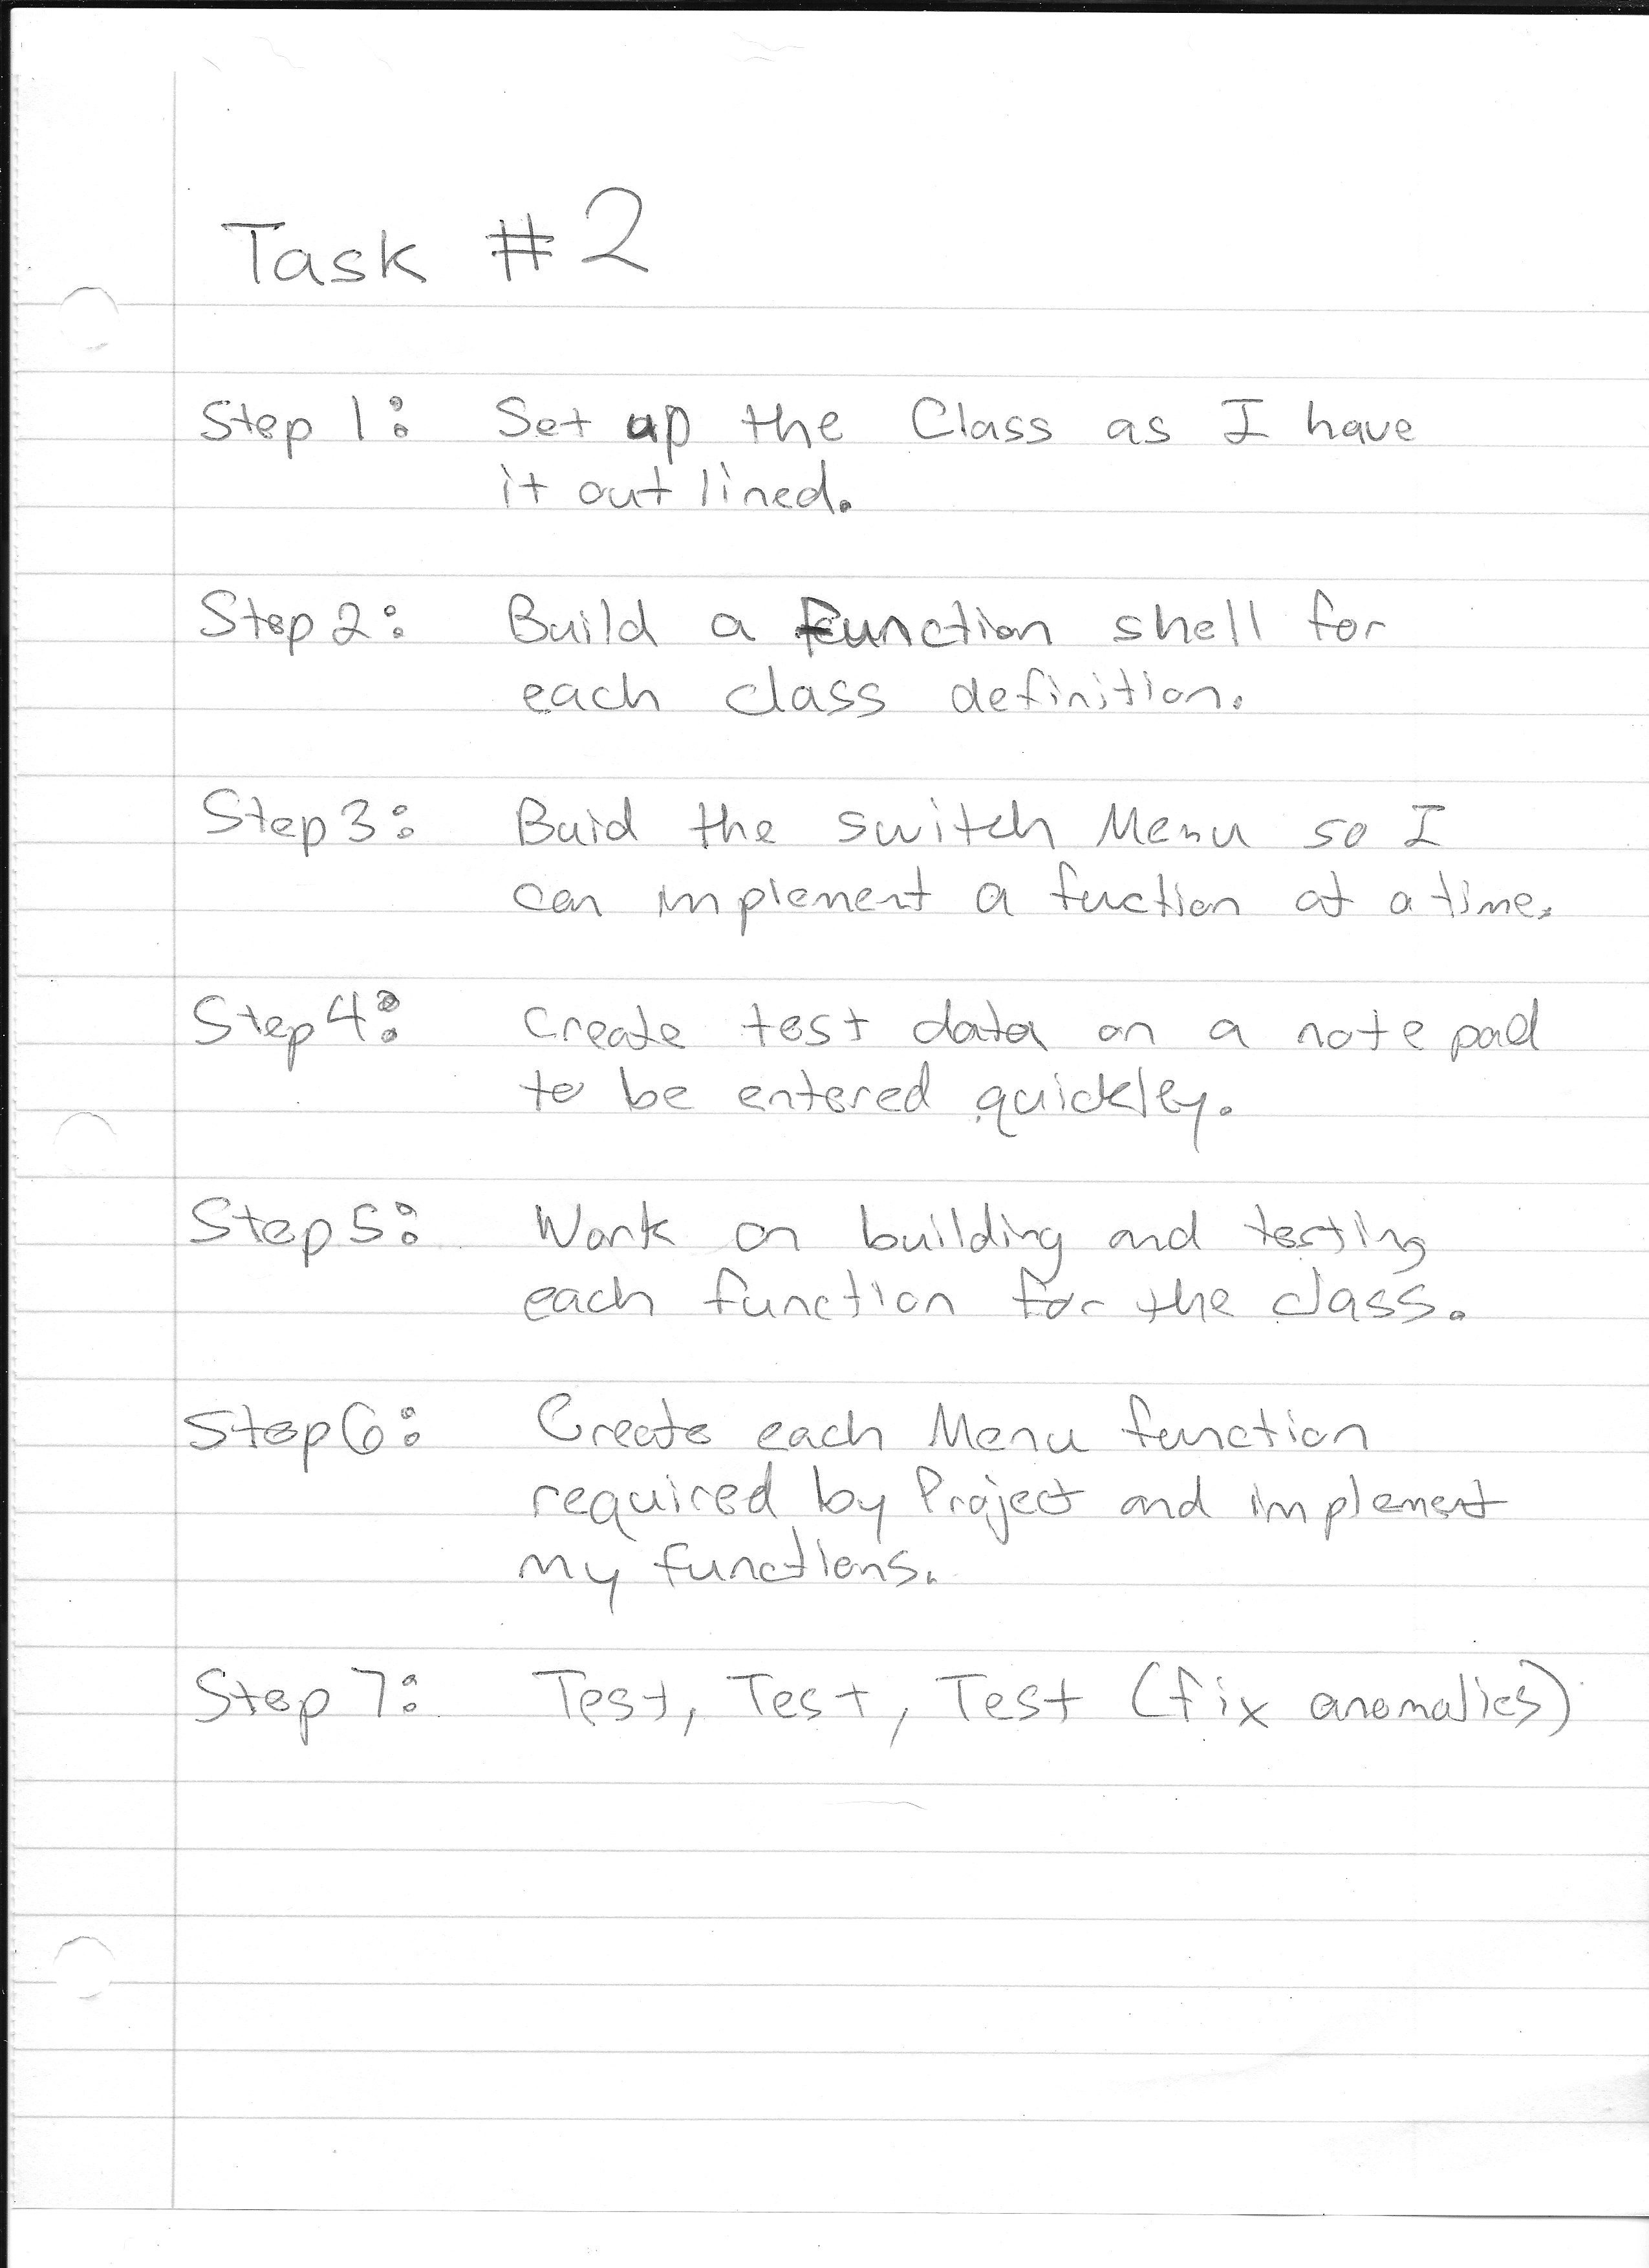 Task #2
Step 1: Set up the Class as I have
it out lined.
Step 2: Build a function shell for
each class definition.
Step 3: Buid the switch Menu so I
can implement a fuction at a time.
Step 4: Create test data on a note pad
to be entered quickley.
Step 5: Work on building and testing
each function for the class.
Step 6: Create each Menu function
required by Project and implement
my functions.
Step 7: Test, Test, Test (fix anomalies)